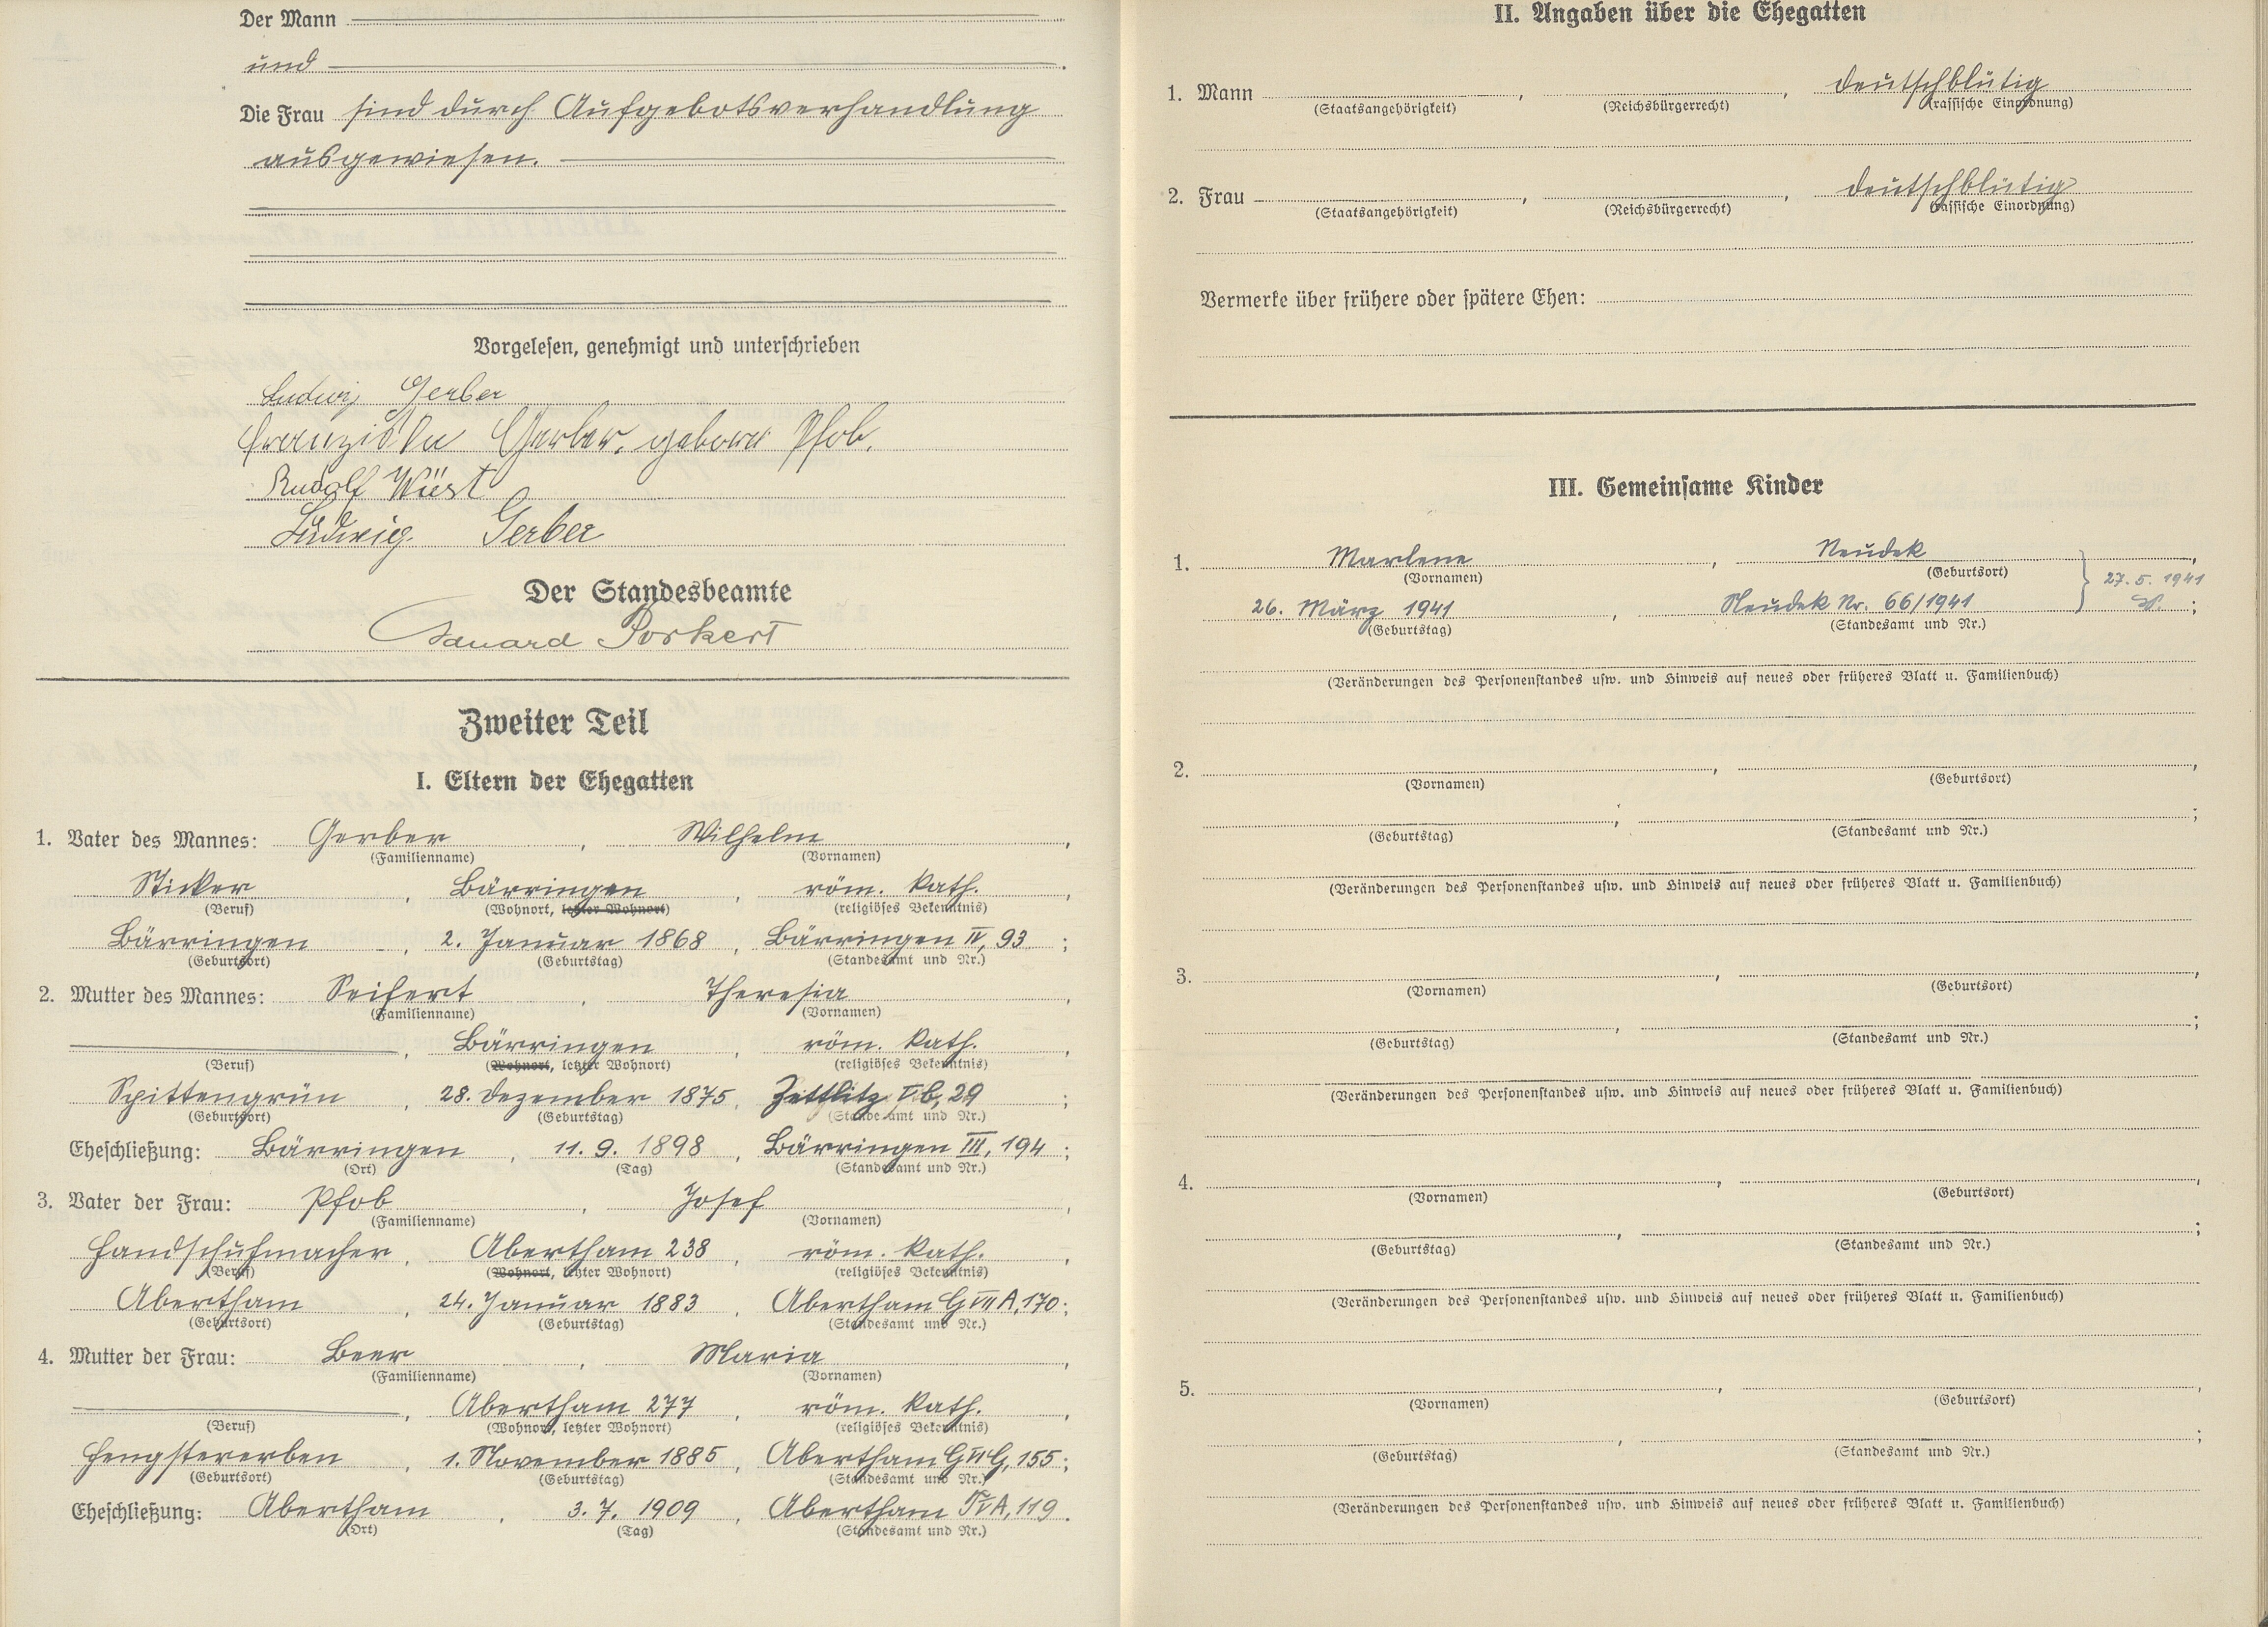 Der Mann
und
Die Frau sind durch Aufgebotsverhandlung
ausgewiesen.
Vorgelesen, genehmigt und unterschrieben
Ludwig Gerber
Franziska Gerber, geborne Pfob.
Rudolf Wüst
Ludwig Gerber
Der Standesbeamte
Eduard Porkert
Zweiter Teil
I. Eltern der Ehegatten
1. Vater des Mannes: Gerber, Wilhelm,
(Familienname) (Vornamen)
Sticker, Bärringen, röm. kath.,
(Beruf) (Wohnort, letzter Wohnort) (religiöses Bekenntnis)
Bärringen, 2. Januar 1868, Bärringen IV, 93;
(Geburtsort) (Geburtstag) (Standesamt und Nr.)
2. Mutter des Mannes: Seifert, Theresia,
(Familienname) (Vornamen)
, Bärringen, röm. kath.,
(Beruf) (Wohnort, letzter Wohnort) (religiöses Bekenntnis)
Spittengrün, 28. Dezember 1875, Zettlitz Vb, 29;
(Geburtsort) (Geburtstag) (Standesamt und Nr.)
Eheschließung: Bärringen, 11. 9. 1898, Bärringen III, 194;
(Ort) (Tag) (Standesamt und Nr.)
3. Vater der Frau: Pfob, Josef,
(Familienname) (Vornamen)
Handschuhmacher, Abertham 238, röm. kath.,
(Beruf) (Wohnort, letzter Wohnort) (religiöses Bekenntnis)
Abertham, 24. Januar 1883, Abertham G VII A, 170;
(Geburtsort) (Geburtstag) (Standesamt und Nr.)
4. Mutter der Frau: Beer, Maria,
(Familienname) (Vornamen)
, Abertham 277, röm. kath.,
(Beruf) (Wohnort, letzter Wohnort) (religiöses Bekenntnis)
Hengstererben, 1. November 1885, Abertham G VI G, 155;
(Geburtsort) (Geburtstag) (Standesamt und Nr.)
Eheschließung: Abertham, 3. 7. 1909, Abertham T V A, 119.
(Ort) (Tag) (Standesamt und Nr.)
II. Angaben über die Ehegatten
1. Mann , , deutschblütig
(Staatsangehörigkeit) (Reichsbürgerrecht) (rassische Einordnung)
2. Frau , , deutschblütig
(Staatsangehörigkeit) (Reichsbürgerrecht) (rassische Einordnung)
Vermerke über frühere oder spätere Ehen:
III. Gemeinsame Kinder
1. Marlene, Neudek,
(Vornamen) (Geburtsort)
26. März 1941, Neudek Nr. 66/1941 } 27. 5. 1941;
(Geburtstag) (Standesamt und Nr.)
(Veränderungen des Personenstandes usw. und Hinweis auf neues oder früheres Blatt u. Familienbuch)
2. , ,
(Vornamen) (Geburtsort)
, ;
(Geburtstag) (Standesamt und Nr.)
(Veränderungen des Personenstandes usw. und Hinweis auf neues oder früheres Blatt u. Familienbuch)
3. , ,
(Vornamen) (Geburtsort)
, ;
(Geburtstag) (Standesamt und Nr.)
(Veränderungen des Personenstandes usw. und Hinweis auf neues oder früheres Blatt u. Familienbuch)
4. , ,
(Vornamen) (Geburtsort)
, ;
(Geburtstag) (Standesamt und Nr.)
(Veränderungen des Personenstandes usw. und Hinweis auf neues oder früheres Blatt u. Familienbuch)
5. , ,
(Vornamen) (Geburtsort)
, ;
(Geburtstag) (Standesamt und Nr.)
(Veränderungen des Personenstandes usw. und Hinweis auf neues oder früheres Blatt u. Familienbuch)